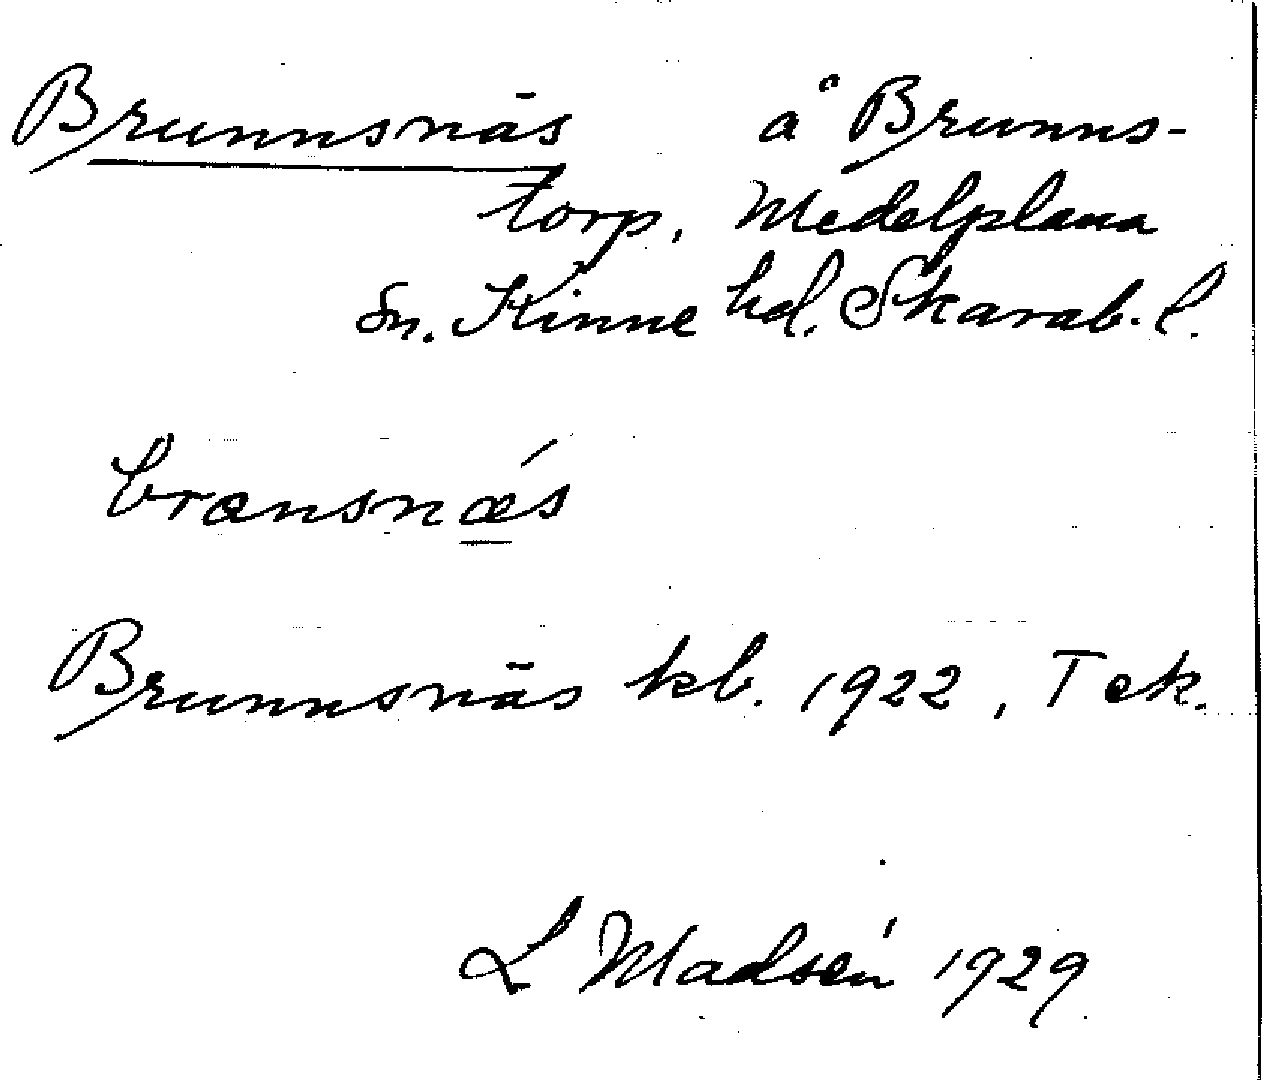 Brunnsnäs å Brunns-
torp, Medelplana
Sn. Kinne hd. Skarab. l.
brænsnǽs
Brunnsnäs kb. 1922, T ek.
L Madsén 1929